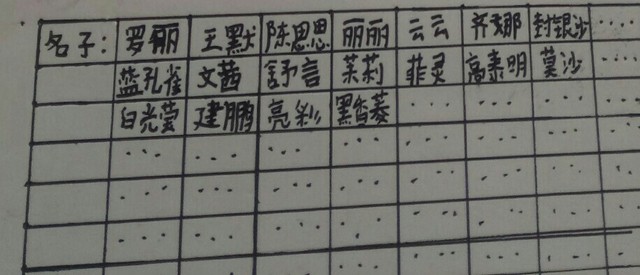 名子: 罗丽 王默 陈思思 丽丽 云云 齐娜 封银沙 ....
蓝孔雀 文茜 舒言 茉莉 菲灵 高泰明 莫沙 ...
白光莹 建鹏 亮彩 黑香菱 ... ... ... ...
... ... ... ... ... ... ... ...
... ... ... ... ... ... ... ...
... ... ... ... ... ... ... ...